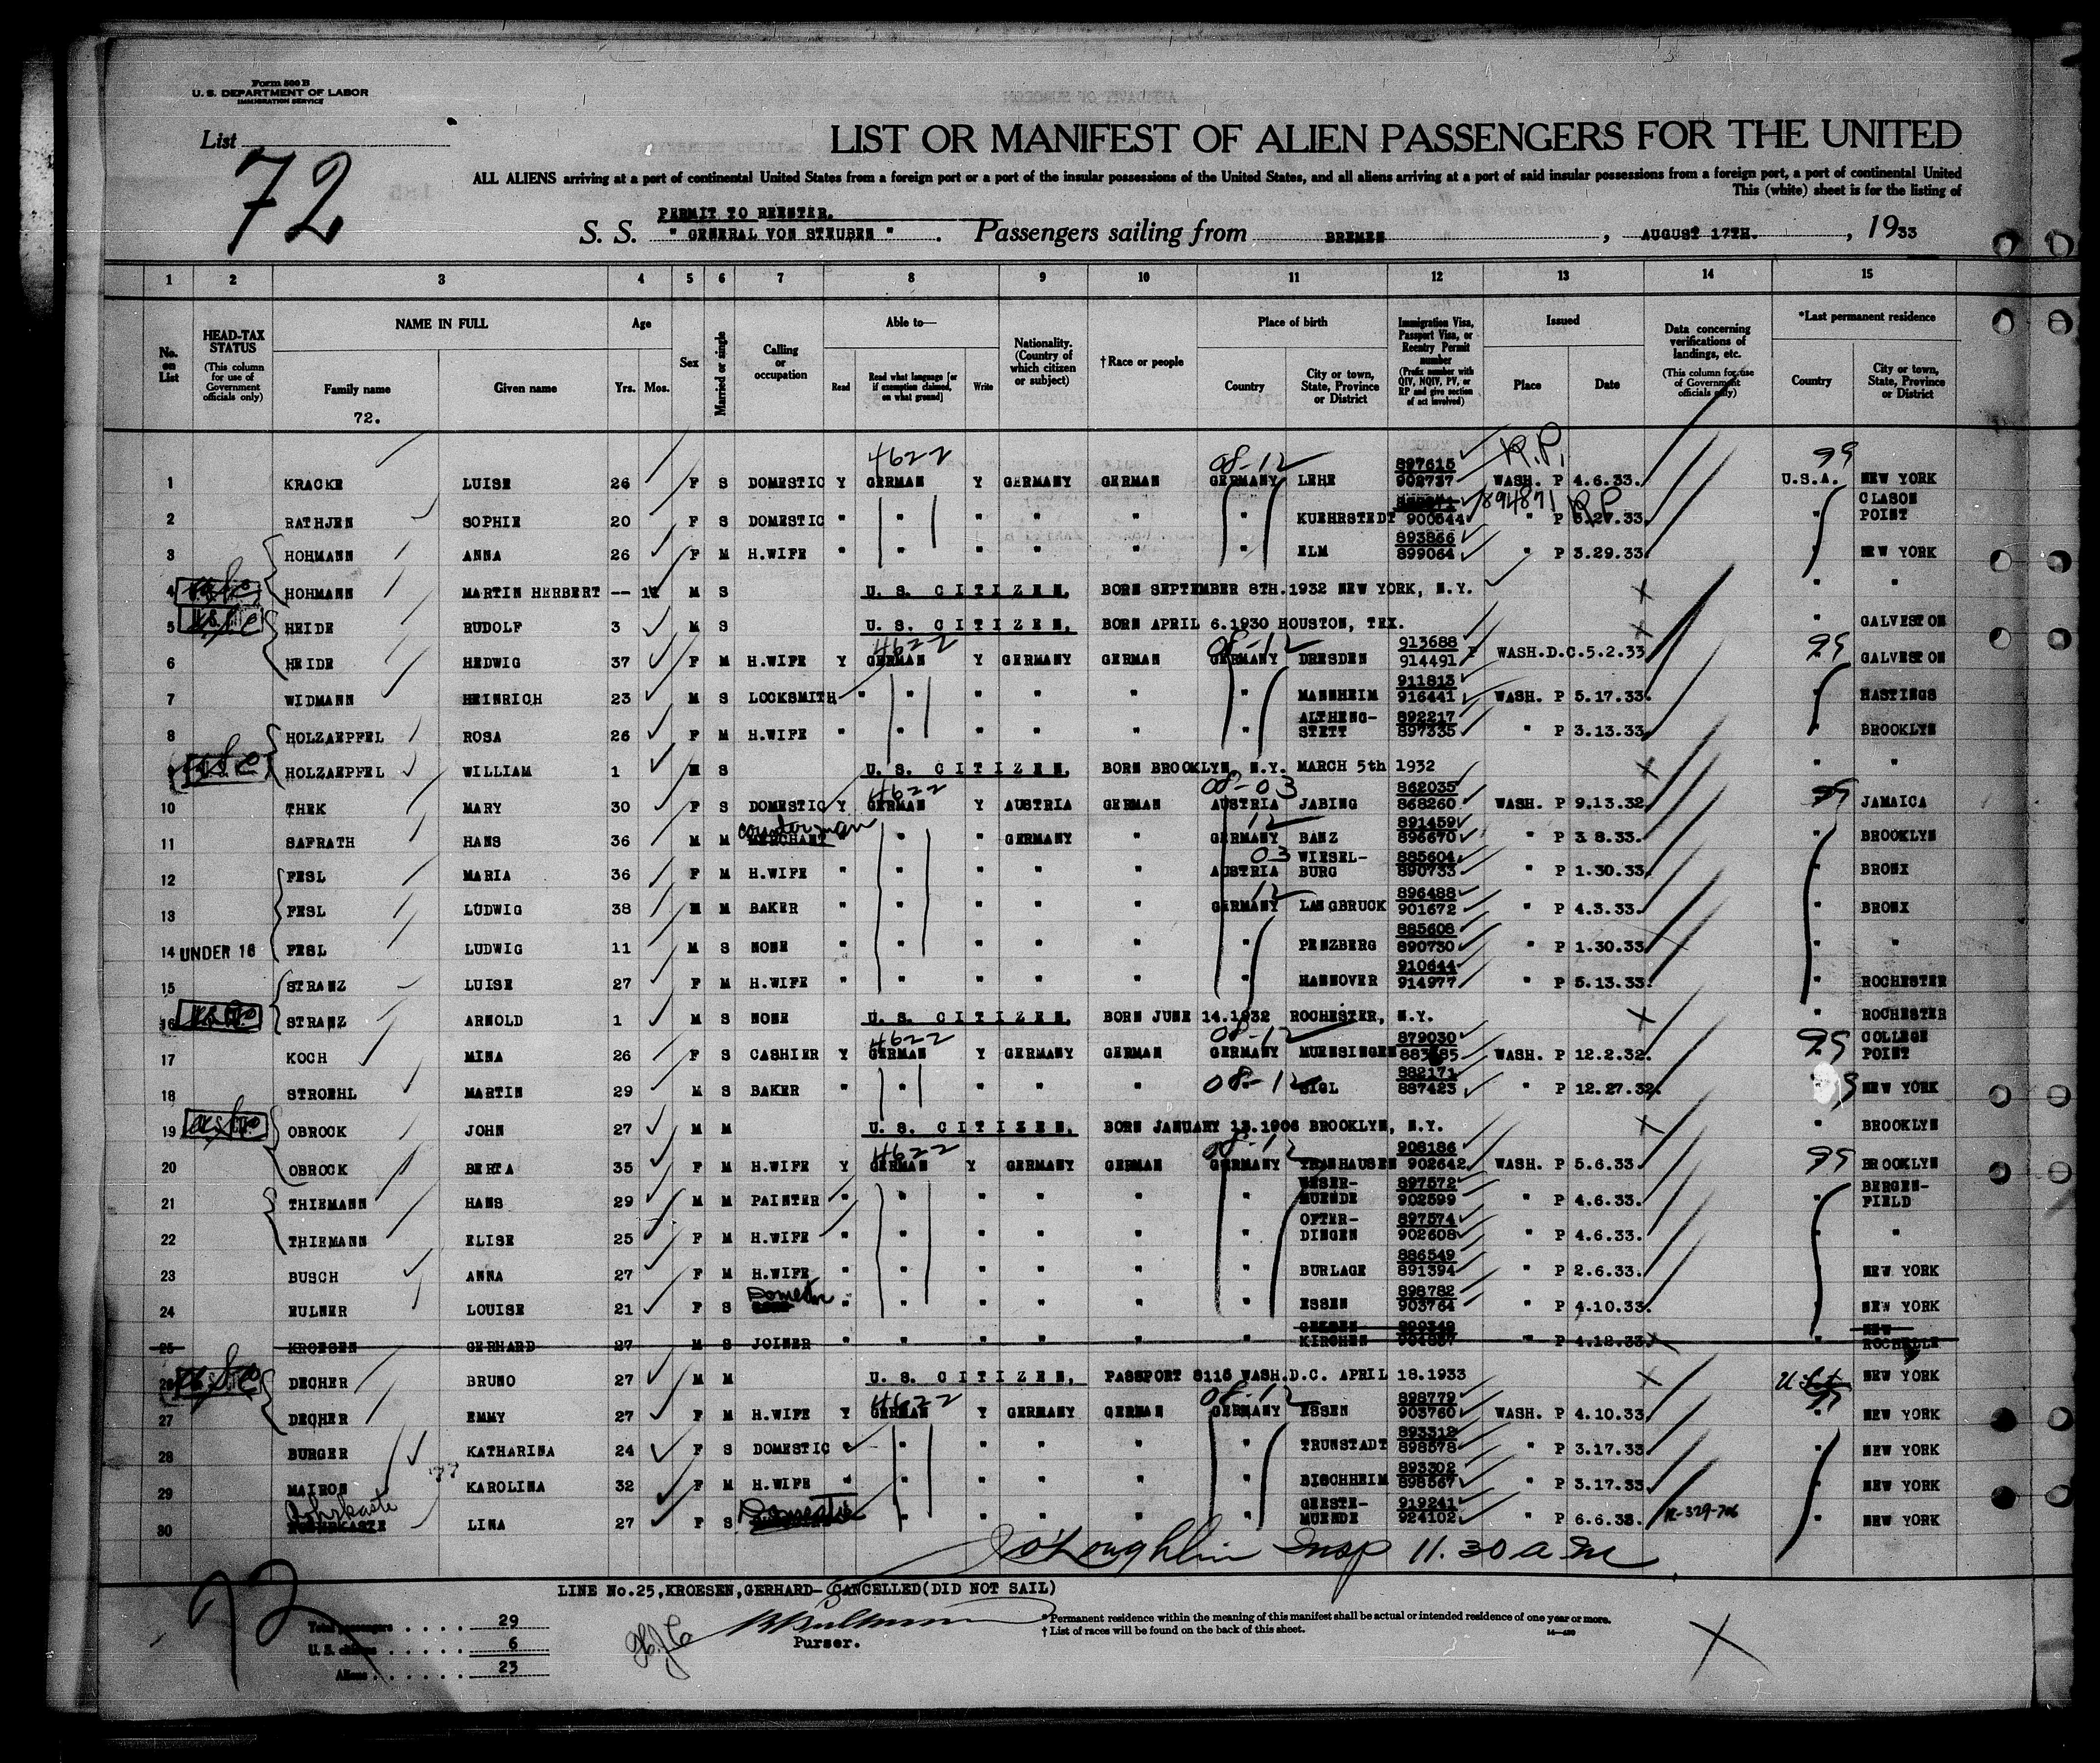 Form 500 B
U. S. DEPARTMENT OF LABOR
IMMIGRATION SERVICE
List
72
LIST OR MANIFEST OF ALIEN PASSENGERS FOR THE UNITED
ALL ALIENS arriving at a port of continental United States from a foreign port or a port of the insular possessions of the United States, and all aliens arriving at a port of said insular possessions from a foreign port, a port of continental United
This (white) sheet is for the listing of
PERMIT TO REENTER.
S. S. " GENERAL VON STEUBEN " . Passengers sailing from BREMEN , AUGUST 17TH. , 1933
1 2 3 4 5 6 7 8 9 10 11 12 13 14 15
No. on List
HEAD-TAX STATUS
(This column for use of Government officials only)
NAME IN FULL
Family name
72.
Given name
Age
Yrs. Mos.
Sex
Married or single
Calling or occupation
Able to—
Read
Read what language [or if exemption claimed, on what ground]
Write
Nationality. (Country of which citizen or subject)
† Race or people
Place of birth
Country
City or town, State, Province or District
Immigration Visa, Passport Visa, or Reentry Permit number
(Prefix number with QIV, NQIV, PV, or RP and give section of act involved)
Issued
Place
Date
Data concerning verifications of landings, etc.
(This column for use of Government officials only)
*Last permanent residence
Country
City or town, State, Province or District
4622 08-12 897615 R.P. 99
1 KRACKE LUISE 26 F S DOMESTIC Y GERMAN Y GERMANY GERMAN GERMANY LEHE 902737 WASH. P 4.6.33. U.S.A. NEW YORK
894871 R.P. CLASON
2 RATHJEN SOPHIE 20 F S DOMESTIC " " " " " " KUEHRSTEDT 900544 " P 3.27.33. " POINT
893866
3 HOHMANN ANNA 26 F M H.WIFE " " " " " " ELM 899064 " P 3.29.33. " NEW YORK
4 HOHMANN MARTIN HERBERT -- 11 M S U. S. CITIZEN, BORN SEPTEMBER 8TH.1932 NEW YORK, N.Y. X " "
5 HEIDE RUDOLF 3 M S U. S. CITIZEN, BORN APRIL 6.1930 HOUSTON, TEX. X " GALVESTON
4622 08-12 913688 99
6 HEIDE HEDWIG 37 F M H.WIFE Y GERMAN Y GERMANY GERMAN GERMANY DRESDEN 914491 P WASH.D.C.5.2.33 GALVESTON
911813
7 WIDMANN HEINRICH 23 M S LOCKSMITH " " " " " " MANNHEIM 916441 WASH. P 5.17.33. " HASTINGS
ALTHENG- 892217
8 HOLZAEPFEL ROSA 26 F M H.WIFE " " " " " " STETT 897335 " P 3.13.33. " BROOKLYN
9 HOLZAEPFEL WILLIAM 1 M S U. S. CITIZEN, BORN BROOKLYN, N.Y. MARCH 5th 1932 X " "
4622 08-03 862035 99
10 THEK MARY 30 F S DOMESTIC Y GERMAN Y AUSTRIA GERMAN AUSTRIA JABING 868260 WASH. P 9.13.32. JAMAICA
counter man 12 891459
11 SAFRATH HANS 36 M M MERCHANT " " " GERMANY " GERMANY BANZ 896670 " P 3 8.33. " BROOKLYN
03 WIESEL- 885604
12 FESL MARIA 36 F M H.WIFE " " " " " AUSTRIA BURG 890733 " P 1.30.33. " BRONX
12 896488
13 FESL LUDWIG 38 M M BAKER " " " " " GERMANY LANGBRUCK 901672 " P 4.3.33. " BRONX
885608
14 UNDER 16 FESL LUDWIG 11 M S NONE " " " " " " PENZBERG 890730 " P 1.30.33. " "
910644
15 STRANZ LUISE 27 F M H.WIFE " " " " " " HANNOVER 914977 " P 5.13.33. " ROCHESTER
16 STRANZ ARNOLD 1 M S NONE U. S. CITIZEN, BORN JUNE 14.1932 ROCHESTER, N.Y. X " ROCHESTER
4622 08-12 879030 99 COLLEGE
17 KOCH MINA 26 F S CASHIER Y GERMAN Y GERMANY GERMAN GERMANY MUENSINGEN WASH. P 12.2.32. POINT
08-12 882171
18 STROEHL MARTIN 29 M S BAKER " " " " " SIGL 887423 " P 12.27.32. NEW YORK
19 OBROCK JOHN 27 M M U. S. CITIZEN, BORN JANUARY 13.1906 BROOKLYN, N.Y. X " BROOKLYN
4622 08-12 908186 99
20 OBROCK BERTA 35 F M H.WIFE Y GERMAN Y GERMANY GERMAN GERMANY 902642 WASH. P 5.6.33. BROOKLYN
WESER- 897572 BERGEN-
21 THIEMANN HANS 29 M M PAINTER " " " " " " MUENDE 902599 " P 4.6.33. " FIELD
OFTER- 897574
22 THIEMANN ELISE 25 F M H.WIFE " " " " " " DINGEN 902608 " P 4.6.33. " "
886549
23 BUSCH ANNA 27 F M H.WIFE " " " " " " BURLAGE 891394 " P 2.6.33. " NEW YORK
Domestic 898782
24 EULNER LOUISE 21 F S " " " " " " ESSEN 903764 " P 4.10.33. " NEW YORK
NEW
25 KROESEN GERHARD 27 M S JOINER " " " " " " KIRCHEN " P 4.12.33. " ROCHELLE
26 DECHER BRUNO 27 M M U. S. CITIZEN, PASSPORT 8115 WASH.D.C. APRIL 18.1933 X NEW YORK
4622 08-12 898779 99
27 DECHER EMMY 27 F M H.WIFE Y GERMAN Y GERMANY GERMAN GERMANY ESSEN 903760 WASH. P 4.10.33. NEW YORK
893312
28 BURGER KATHARINA 24 F S DOMESTIC " " " " " TRUNSTADT 898578 " P 3.17.33. " NEW YORK
893302
29 MAIRON KAROLINA 32 F M H.WIFE " " " " " " BISCHHEIM 898567 " P 3.17.33. " NEW YORK
Rohrkaste Domestic GEESTE- 919241
30 LINA 27 F S " " " " " MUENDE 924102 " P 6.6.33. R-329-706 " NEW YORK
O'Loughlin Insp 11.30 a m
LINE No.25,KROESEN,GERHARD- CANCELLED(DID NOT SAIL)
72
Total passengers 29
U. S. citizens 6
Aliens 23
Purser.
* Permanent residence within the meaning of this manifest shall be actual or intended residence of one year or more.
† List of races will be found on the back of this sheet.
X